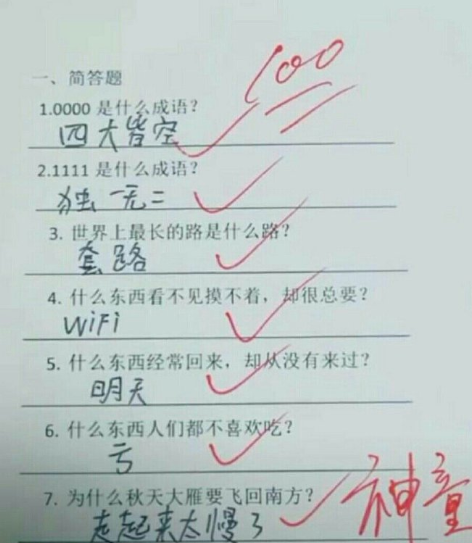 100
一、简答题
1.0000 是什么成语？
四大皆空
2.1111 是什么成语？
独一无二
3. 世界上最长的路是什么路？
套路
4. 什么东西看不见摸不着，却很总要？
WiFi
5. 什么东西经常回来，却从没有来过？
明天
6. 什么东西人们都不喜欢吃？
亏
7. 为什么秋天大雁要飞回南方？
走起来太慢了
神童